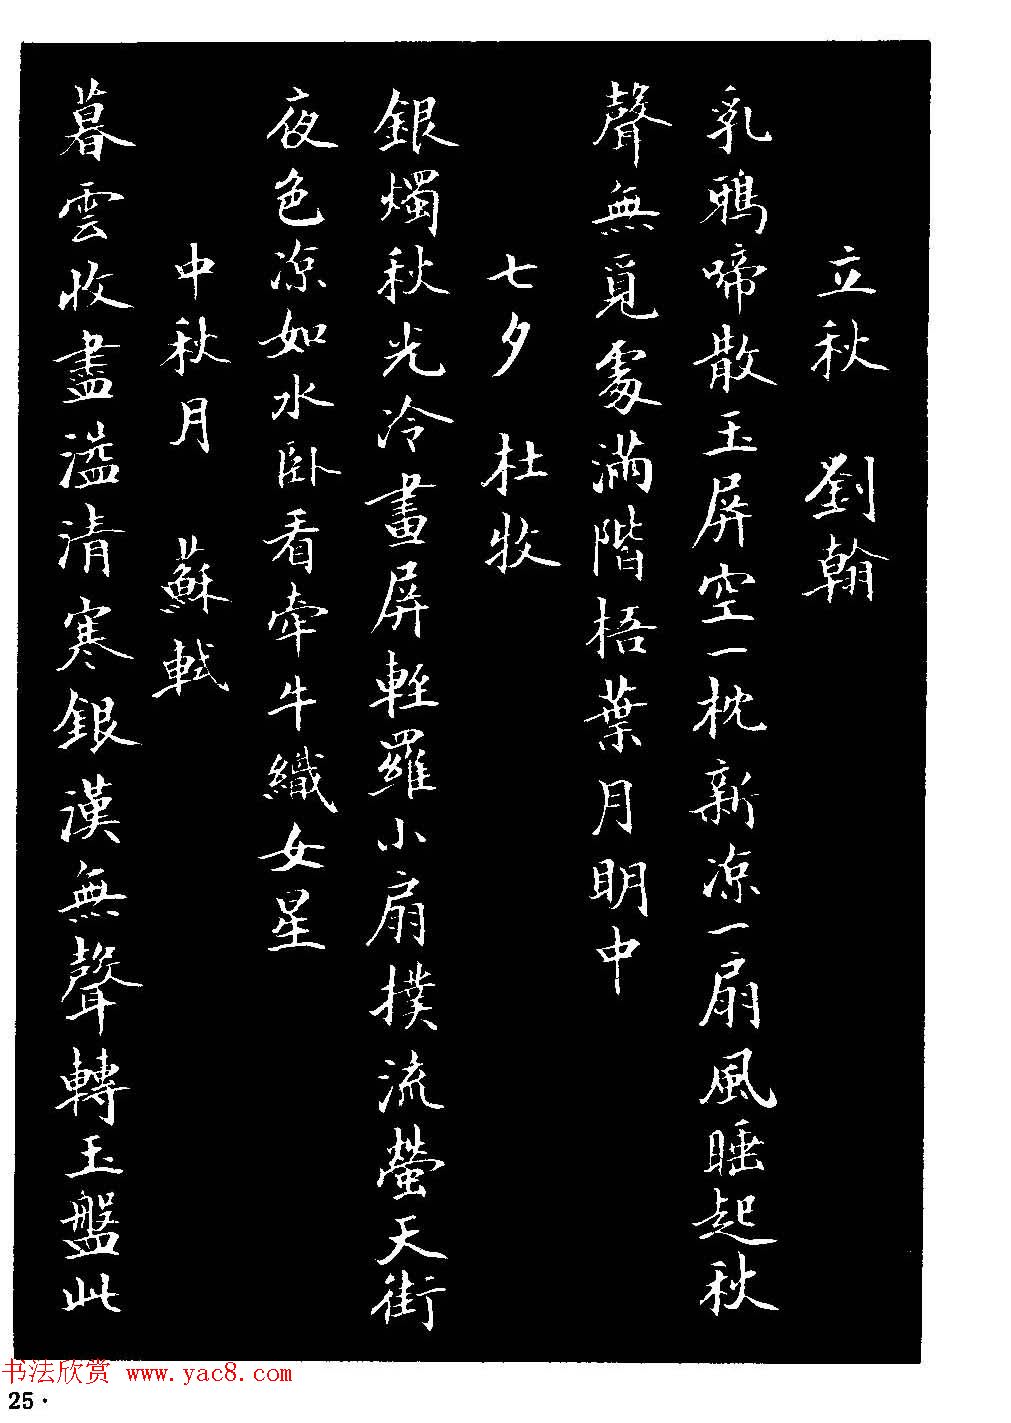 立秋 劉翰
乳鴉啼散玉屏空一枕新涼一扇風睡起秋
聲無覓處滿階梧葉月明中
七夕 杜牧
銀燭秋光冷畫屏輕羅小扇撲流螢天街
夜色涼如水卧看牽牛織女星
中秋月 蘇軾
暮雲收盡溢清寒銀漢無聲轉玉盤此
书法欣赏 www.yac8.com
25·